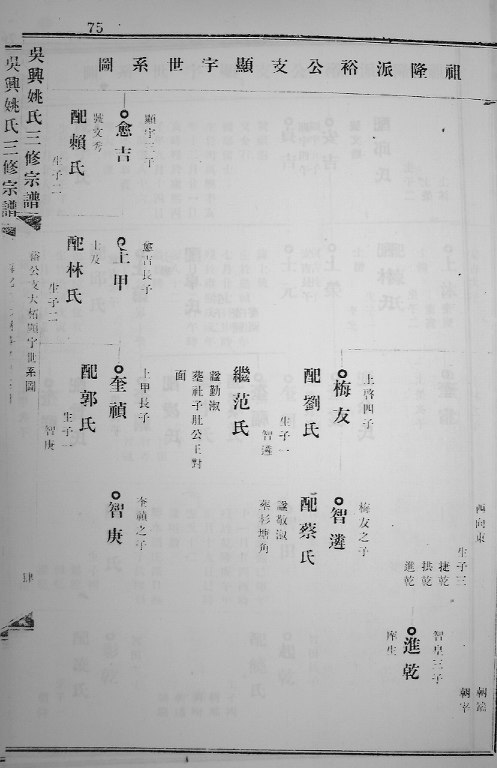 75
祖隆派裕公支顯宇世系圖
西向東
生子三
捷乾
拱乾
進乾
智皇三子
進乾
庠生
上啓四子
梅友
配劉氏
生子一
智遴
繼范氏
諡勤淑
墓社子肚公王對
面
梅友之子
智遴
配蔡氏
諡敬淑
墓杉塘角
顯宇三子
愈吉
號文秀
配賴氏
生子二
愈吉長子
上甲
配林氏
生子二
上甲長子
奎禎
配郭氏
生子一
智庚
奎禎之子
智庚
吳興姚氏三修宗譜
世系圖
肆
吳興姚氏三修宗譜